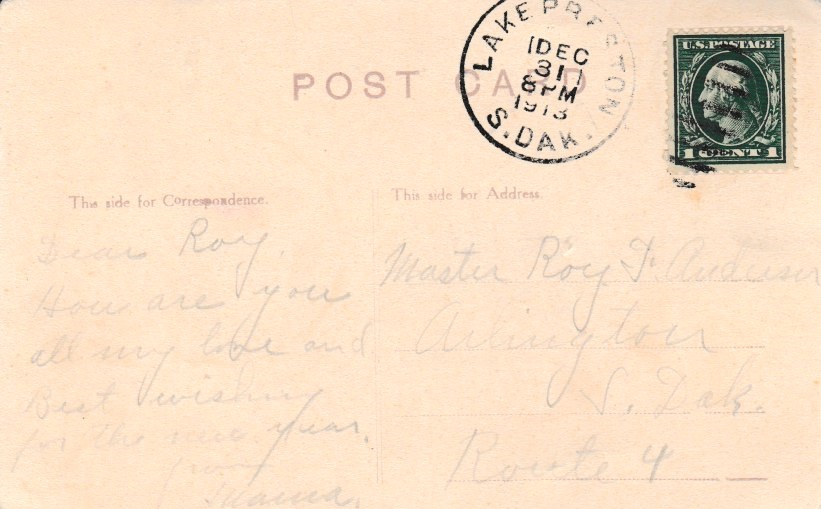 POST CARD
LAKE PRESTON
DEC
31
8 PM
1913
S. DAK.
U.S. POSTAGE
1 CENT 1
This side for Correspondence.
Dear Roy.
How are you
all my love and
Best wishing
for the new year.
from
Mama.
This side for Address.
Master Roy F. Anderson
Arlington
S. Dak.
Route 4